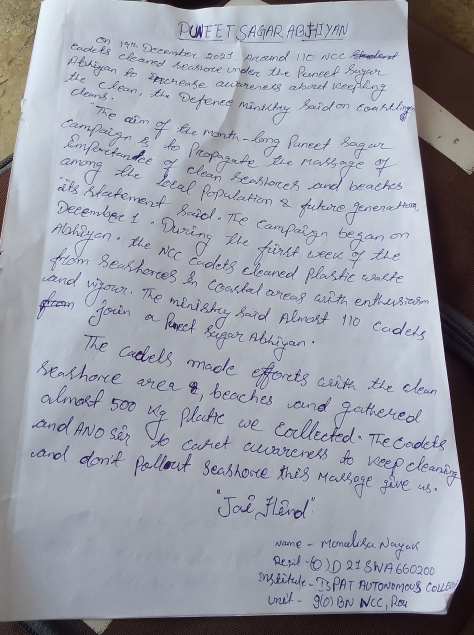 PUNEET SAGAR ABHIYAN
On 19th December 2021 Around 110 NCC
cadets cleaned seashore under the Puneet Sagar
Abhiyan to increase awareness about keeping
the clean, the Defence ministry said on
cleans.
"The aim of the month-long Puneet Sagar
campaign is to propagate the massage of
Importance of clean seashores and beaches
among the local population & future generation,
its statement said. The campaign began on
December 1. During the first week of the
Abhiyan. the NCC cadets cleaned plastic waste
from seashores in coastal areas with enthusiasm
and vigour. The ministry said Almost 110 cadets
join a Puneet Sagar Abhiyan.
The cadets made efforts with the clean
seashore area, beaches and gathered
almost 500 kg platic we collected. The cadets
and ANO sir to caret awareness to keep cleaning
and don't pollout seashore this massage give us.
"Jai Hind"
Name - Monalisa Nayak
Regit - (O)D 21 SWA 660200
Institute - ISPAT AUTONOMOUS COLLEGE
Unit - 9(O) BN NCC, Rou